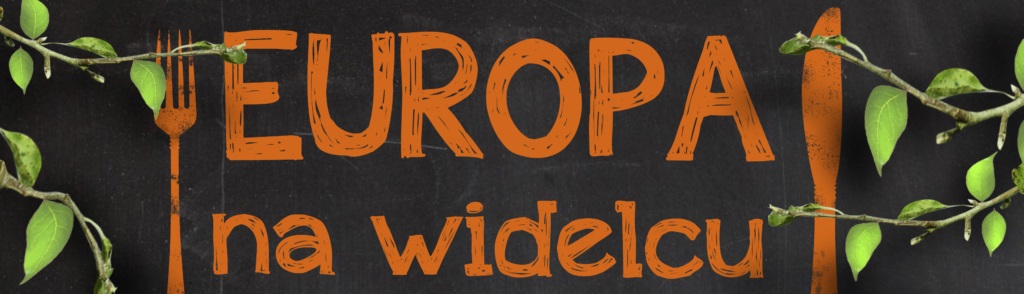 EUROPA
na widelcu